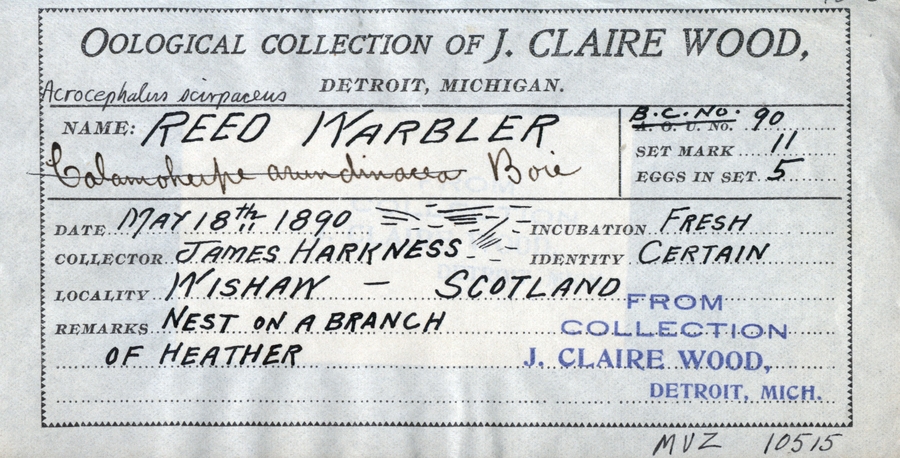 OOLOGICAL COLLECTION OF J. CLAIRE WOOD,
DETROIT, MICHIGAN.
Acrocephalus scirpaceus
NAME: REED WARBLER
Calamoherpe arundinacea Boie
B.C. No. 90
A. O. U. NO.
SET MARK 11
EGGS IN SET 5
DATE MAY 18th 1890
INCUBATION FRESH
COLLECTOR JAMES HARKNESS
IDENTITY CERTAIN
LOCALITY WISHAW – SCOTLAND
REMARKS NEST ON A BRANCH
OF HEATHER
FROM
COLLECTION
J. CLAIRE WOOD,
DETROIT, MICH.
MVZ 10515